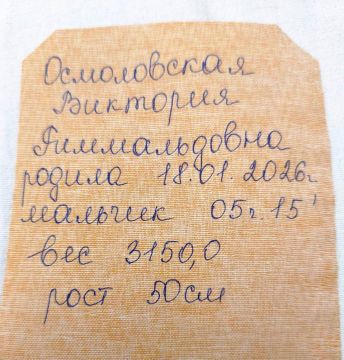 Осмоловская
Виктория
Гиммальдовна
родила 18.01.2026г
мальчик 05г.15'
вес 3150,0
рост 50см